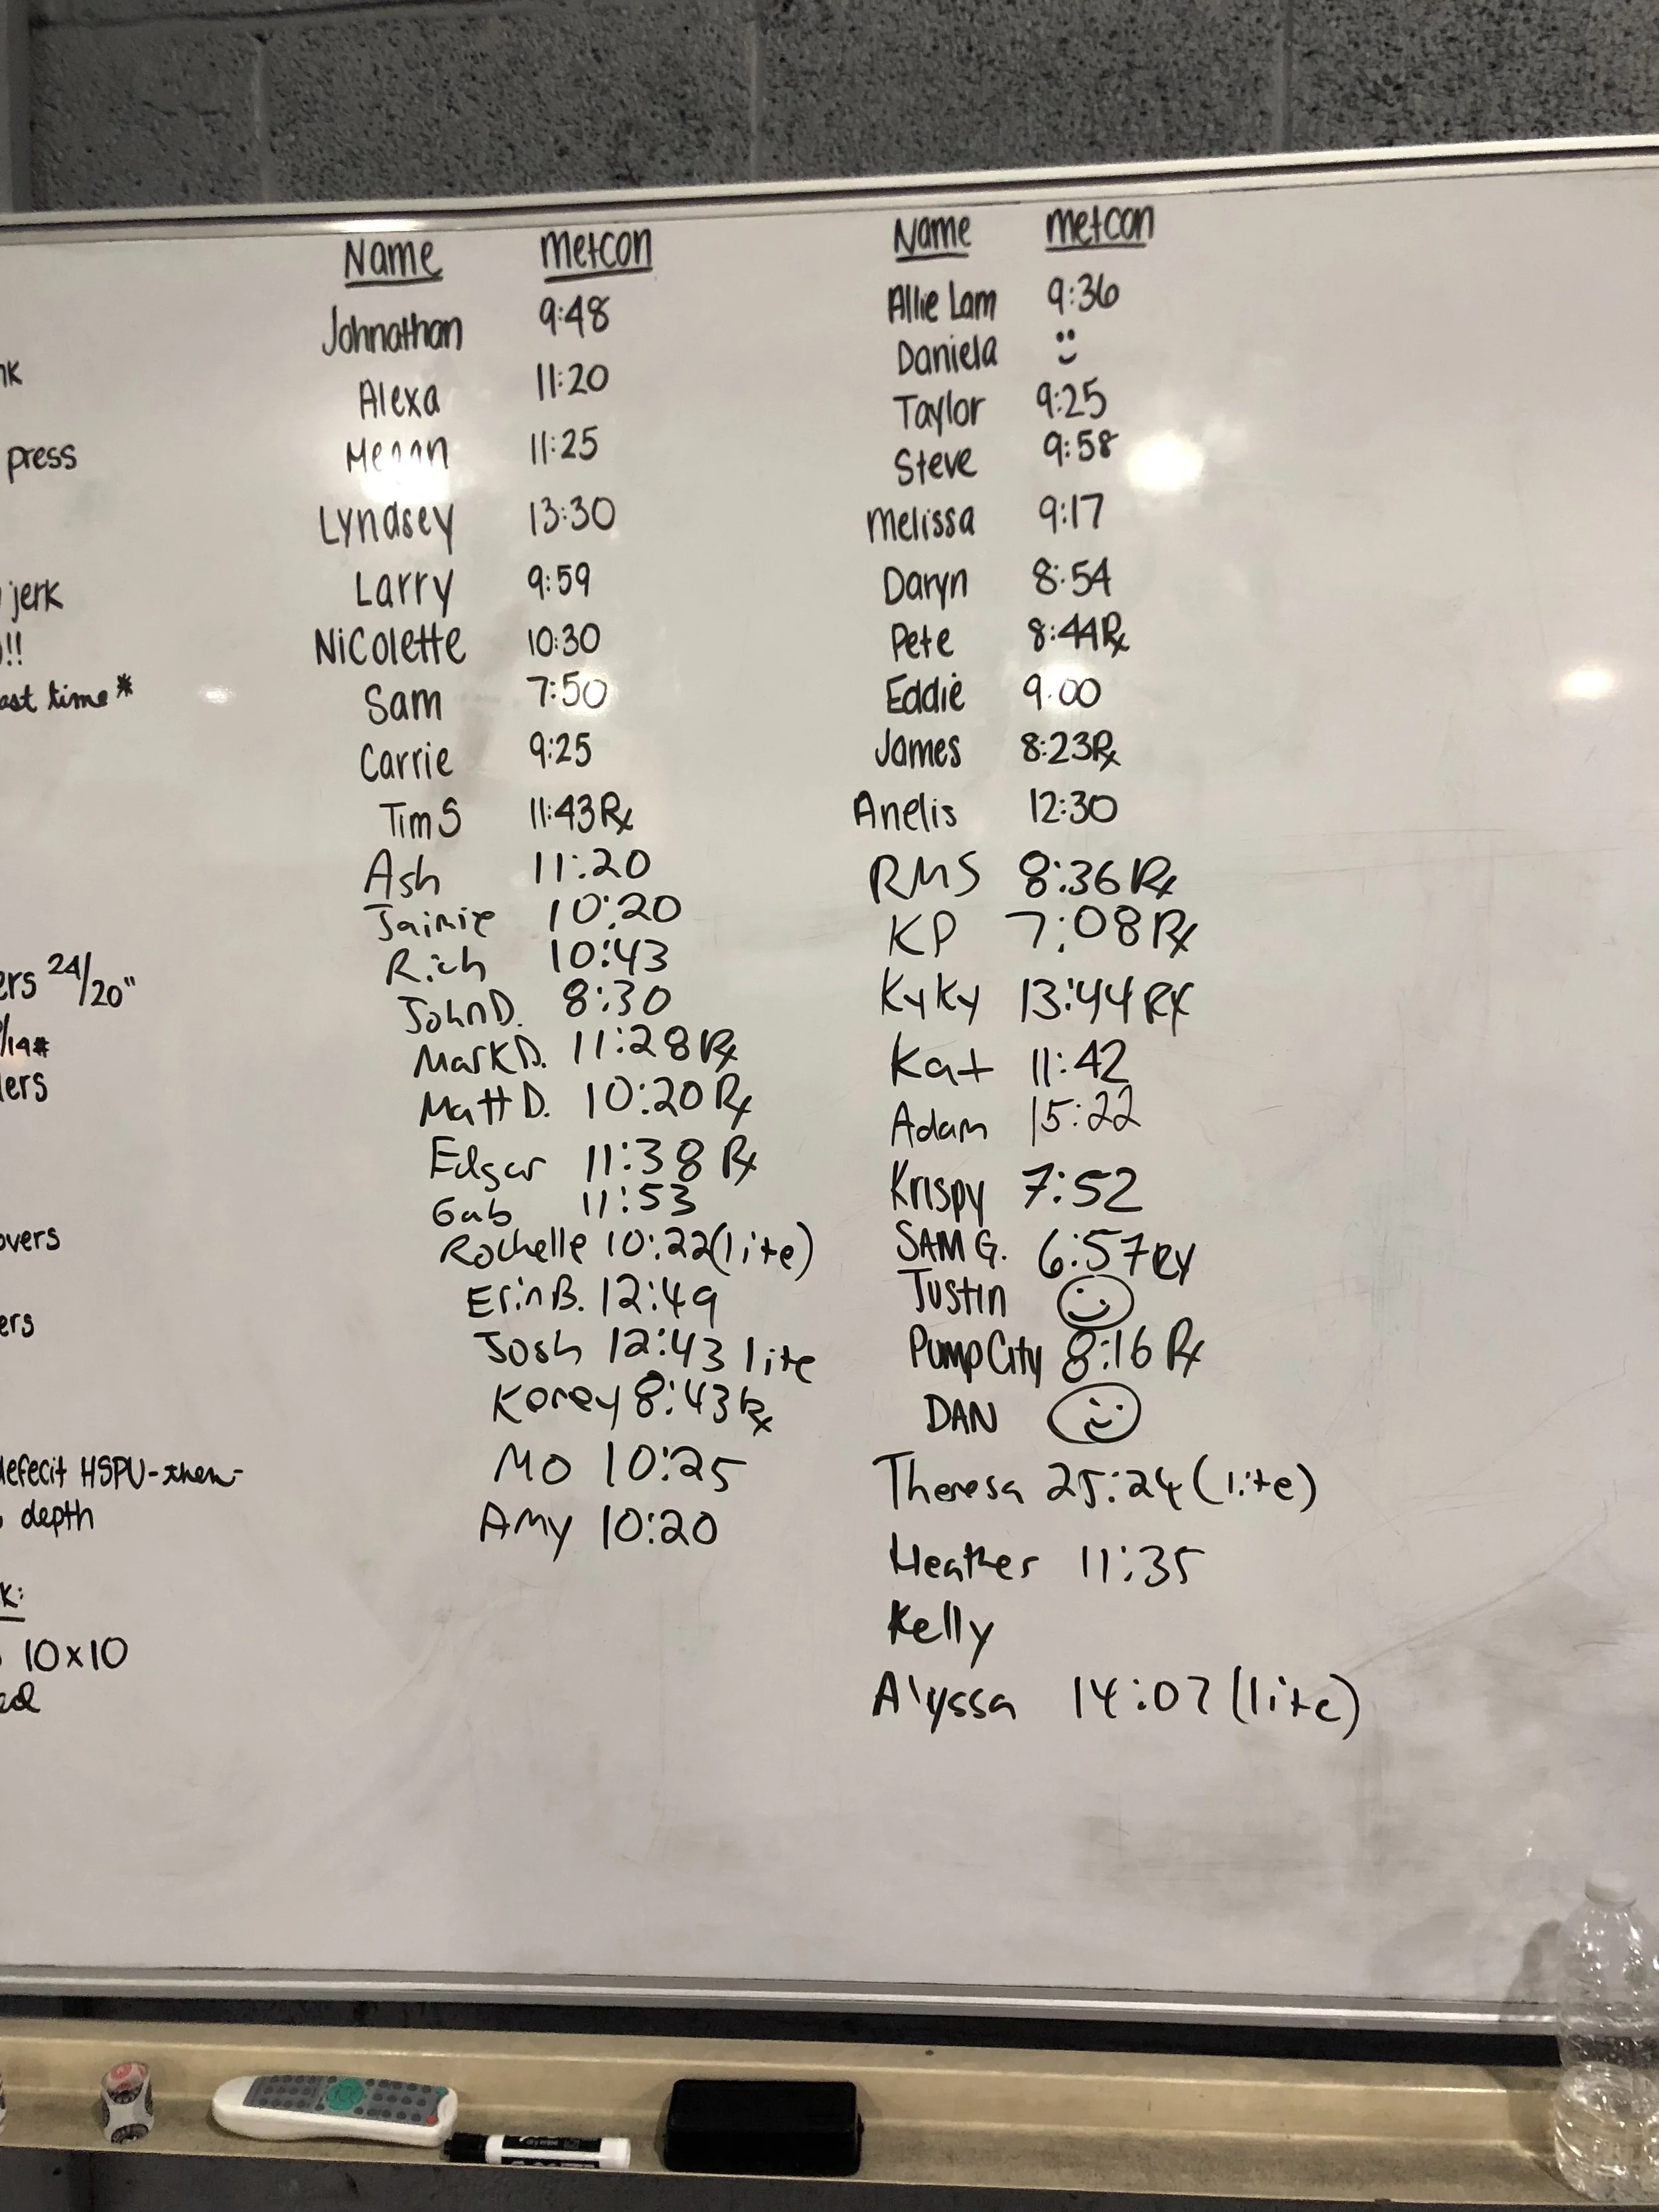 nk
press
jerk
!!
ast time*
ers 24/20"
/14#
lers
overs
ers
defecit HSPU-then-
depth
k:
10x10
ed
Name Metcon
Johnathan 9:48
Alexa 11:20
Megan 11:25
Lyndsey 13:30
Larry 9:59
Nicolette 10:30
Sam 7:50
Carrie 9:25
Tim S 11:43 Rx
Ash 11:20
Jaimie 10:20
Rich 10:43
John D. 8:30
Mark D. 11:28 Rx
Matt D. 10:20 Rx
Edgar 11:38 Rx
Gab 11:53
Rochelle 10:22 (lite)
Erin B. 12:49
Josh 12:43 lite
Korey 8:43 Rx
Mo 10:25
Amy 10:20
Name metcon
Allie Lam 9:36
Daniela
Taylor 9:25
Steve 9:58
Melissa 9:17
Daryn 8:54
Pete 8:44 Rx
Eddie 9:00
James 8:23 Rx
Anelis 12:30
RMS 8:36 Rx
KP 7:08 Rx
KyKy 13:44 RX
Kat 11:42
Adam 15:22
Krispy 7:52
SAM G. 6:57 RX
Justin
Pump City 8:16 Rx
DAN
Theresa 25:24 (lite)
Heather 11:35
Kelly
Alyssa 14:07 (lite)